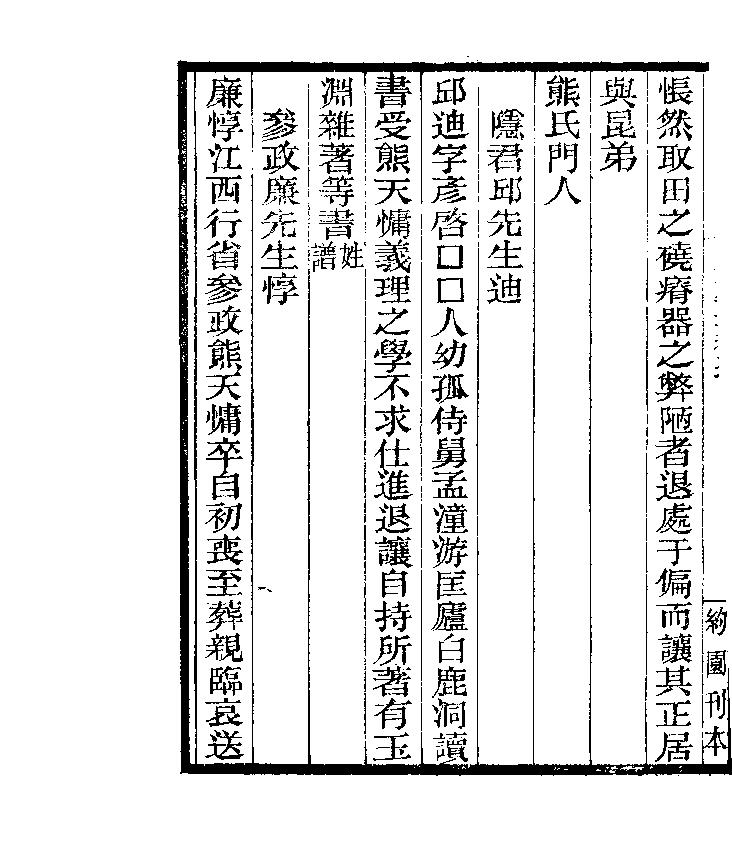 悵然取田之磽瘠器之弊陋者退處于偏而讓其正居
與昆弟
熊氏門人
隱君邱先生迪
邱迪字彥啓囗囗人幼孤侍舅孟潼游匡廬白鹿洞讀
書受熊天慵義理之學不求仕進退讓自持所著有玉
淵雜著等書姓譜
參政廉先生惇
廉惇江西行省參政熊天慵卒自初喪至葬親臨哀送
約園刊本